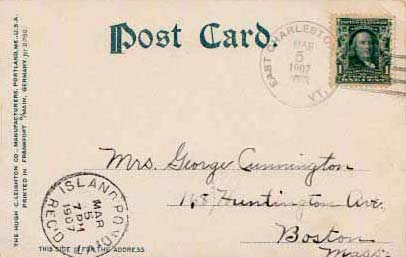 Post Card
EAST CHARLESTON
MAR
5
1907
VT.
THE HUGH C. LEIGHTON CO., MANUFACTURERS, PORTLAND, ME., U.S.A.
PRINTED IN FRANKFORT a/MAIN, GERMANY.
Mrs. George Cunnington
168 Huntington Ave.
Boston
Mass.
ISLAND POND
MAR
5
7 PM
1907
REC'D.
THIS SIDE IS FOR THE ADDRESS